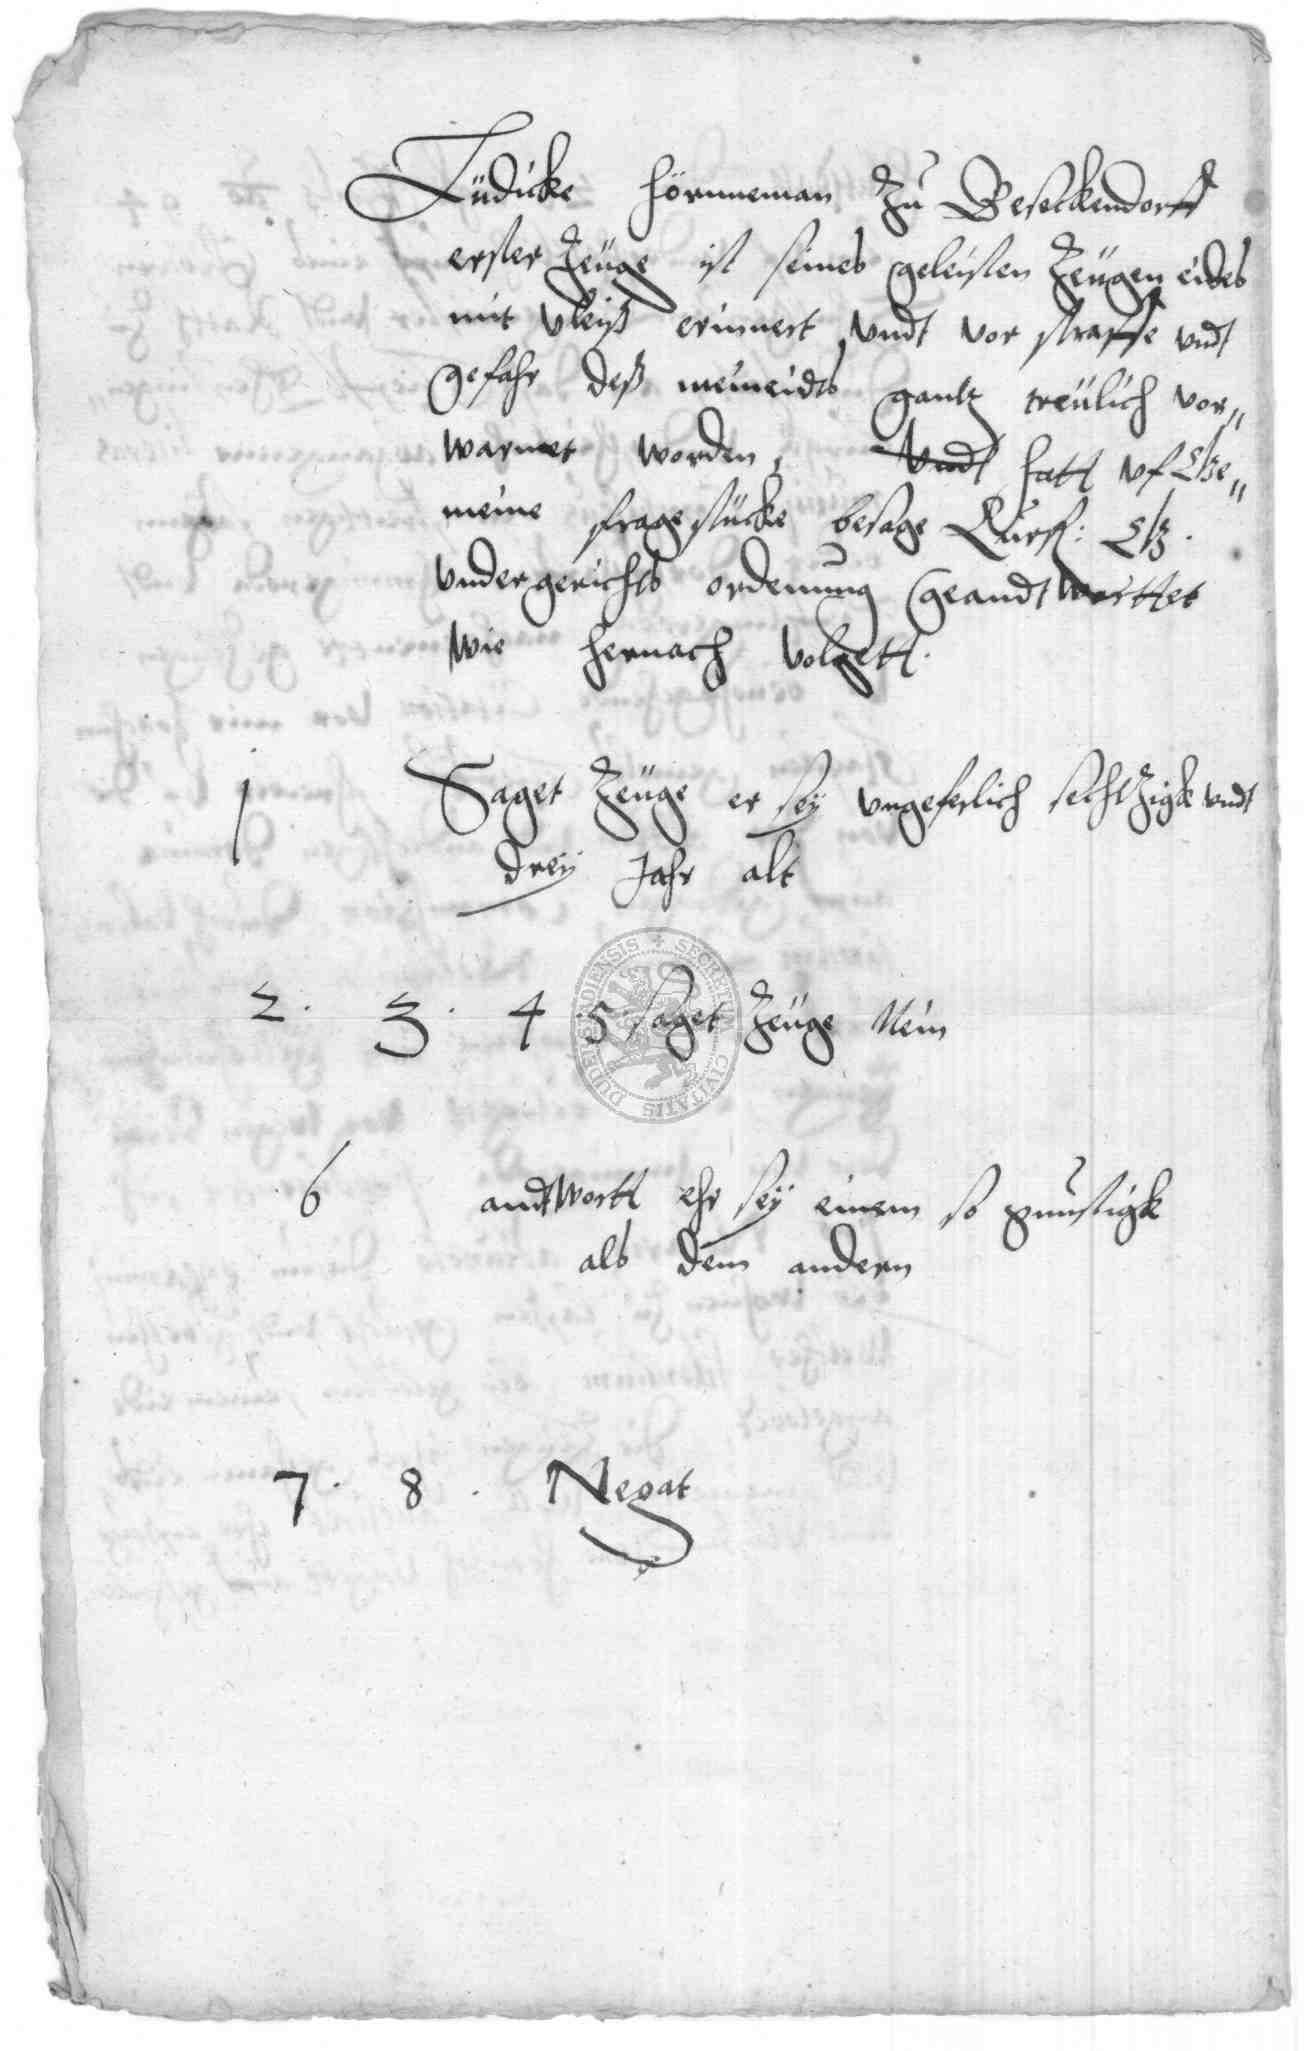 Lüdicke Hörnneman Zu Beseckendorff
erster Zeuge ist seines geleisten Zeugen eides
mit vleiß erinnert vndt vor straffe vndt
gefahr deß meineidts gantz treulich vor„
warnet worden, vndt hatt vf
meine fragestücke besage Curf:
vndergerichts ordenung geandtworttet
wie hernach volgett.
1 Saget Zeuge er sey vngeferlich sechtzigk vndt
drey Jahr alt
2. 3. 4 5 saget Zeuge Nein
6 andtwortt ehr sey einem so gunstigk
als dem andern
7. 8. Negat
DUDERSTADIENSIS + SECRETUM CIVITATIS